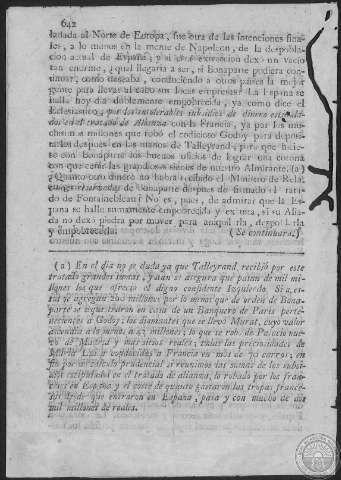 642
ladada al Norte de Europa, fue otra de las intenciones fina-
les, a lo menos en la mente de Napoleon, de la despobla-
cion actual de España; y si esta extraccion dexó un vacío
tan enorme, ¿qual llegaria a ser, si Bonaparte pudiera con-
tinuar, como deseaba, conduciendo a otros paises la mejor
gente para llevar al cabo sus locas empresas? La España se
halla hoy dia doblemente empobrecida, ya como dice el
Eclesiastico, por los innumerables
en el tratado de alianza con la Francia, ya por los mu-
chisimos millones que robó el codicioso Godoy para deposi-
tarlos despues en las manos de Talleyrand, para que hicie-
se con Bonaparte los buenos oficios de lograr una corona
con que ceñir las grandiosas sienes de nuestro Almirante. (a)
¿Quanto otro dinero no habrá
de Bonaparte despues de firmado el trata-
do de Fontainebleau? No es, pues, de admirar que la Es-
paña se halle sumamente empobrecida y exhausta, si su Alia-
da no dexó piedra por mover para aniquilarla, despoblarla
y empobrecerla. (Se continuara.)
(a) En el dia no se duda ya que Talleyrand recibió por este
tratado grandes sumas, y aun se asegura que pasan de mil mi-
llones los que ofreció el digno confidente Izquierdo. Si á es-
ta se agregan 200 millones por lo menos que de orden de Bona-
parte se sequestraron en casa de un Banquero de Paris perte-
necientes a Godoy; los diamantes que se llevó Murat, cuyo valor
ascendia a lo menos a 25 millones; lo que se robó de Palacio nue-
vo de Madrid y mas sitios reales; todas las preciosidades de
Maria Luisa conducidas a Francia en mas de 70 carros; en
fin por un calculo prudencial si reunimos las sumas de los subsi-
dios estipulados en el tratado de alianza, lo robado por los fran-
ceses en España y el coste de quanto gastaron las tropas france-
sas desde que entraron en España, pasa y con mucho de dos
mil millones de reales.